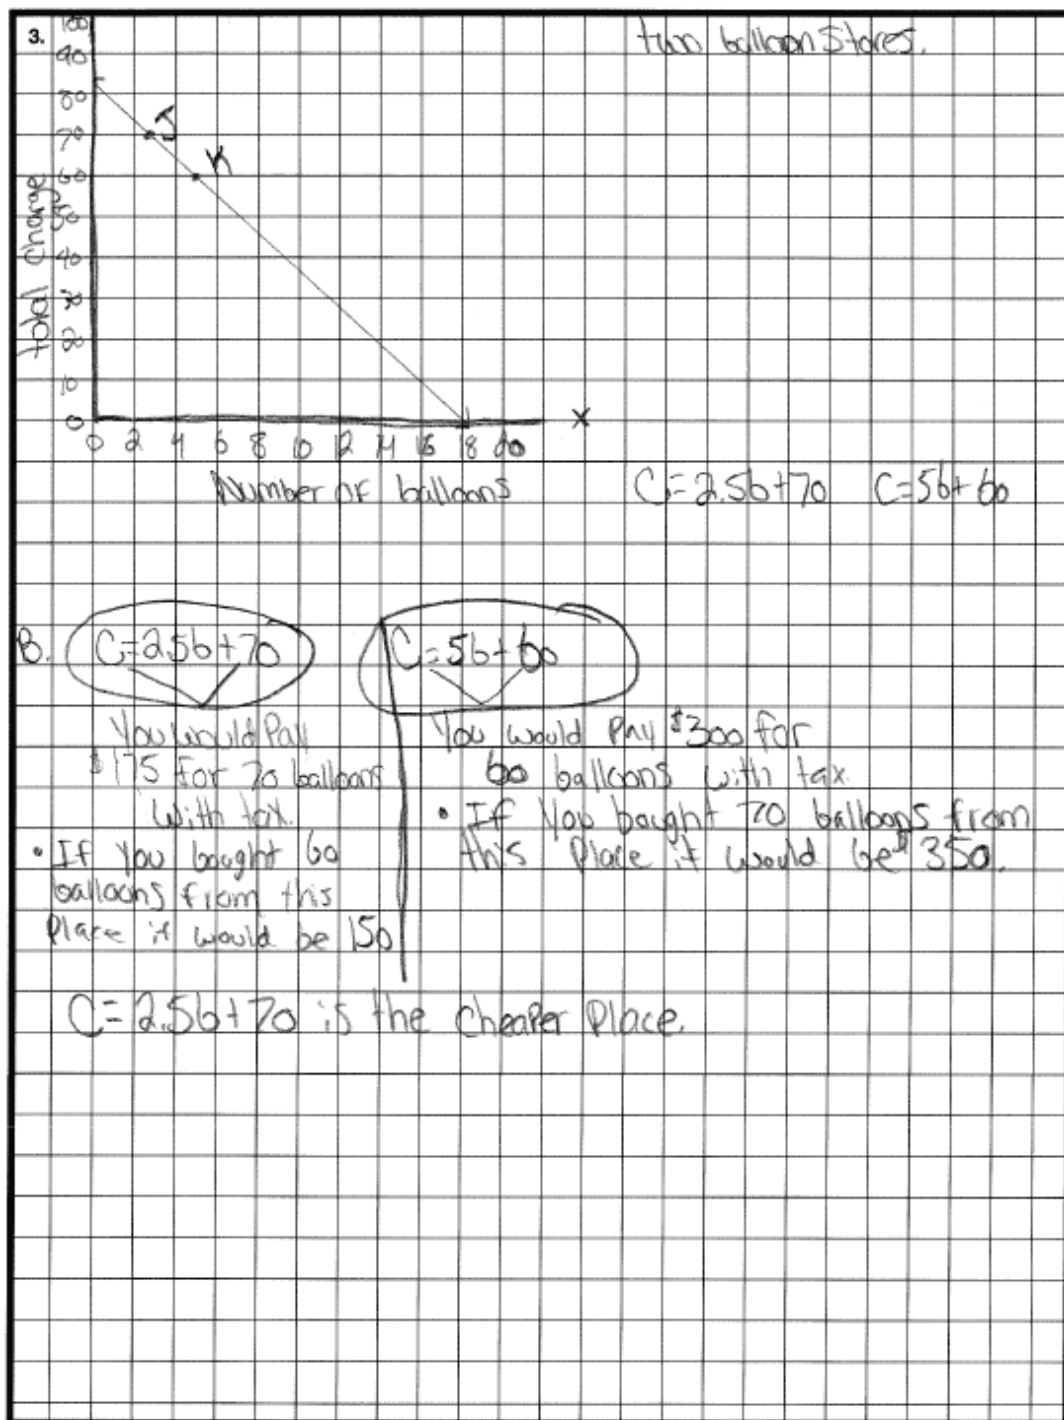 3.
two balloon stores.
100
90
80
70
60
50
40
30
20
10
0
J
K
total charge
0 2 4 6 8 10 12 14 16 18 20
X
Number of balloons
C=2.5b+70 C=5b+60
B. C=2.5b+70 C=5b+60
You would Pay
$175 for 70 balloons
with tax.
• If you bought 60
balloons from this
place it would be 150
You would Pay $300 for
60 balloons with tax.
• If you bought 70 balloons from
this place it would be $350.
C=2.5b+70 is the cheaper Place.